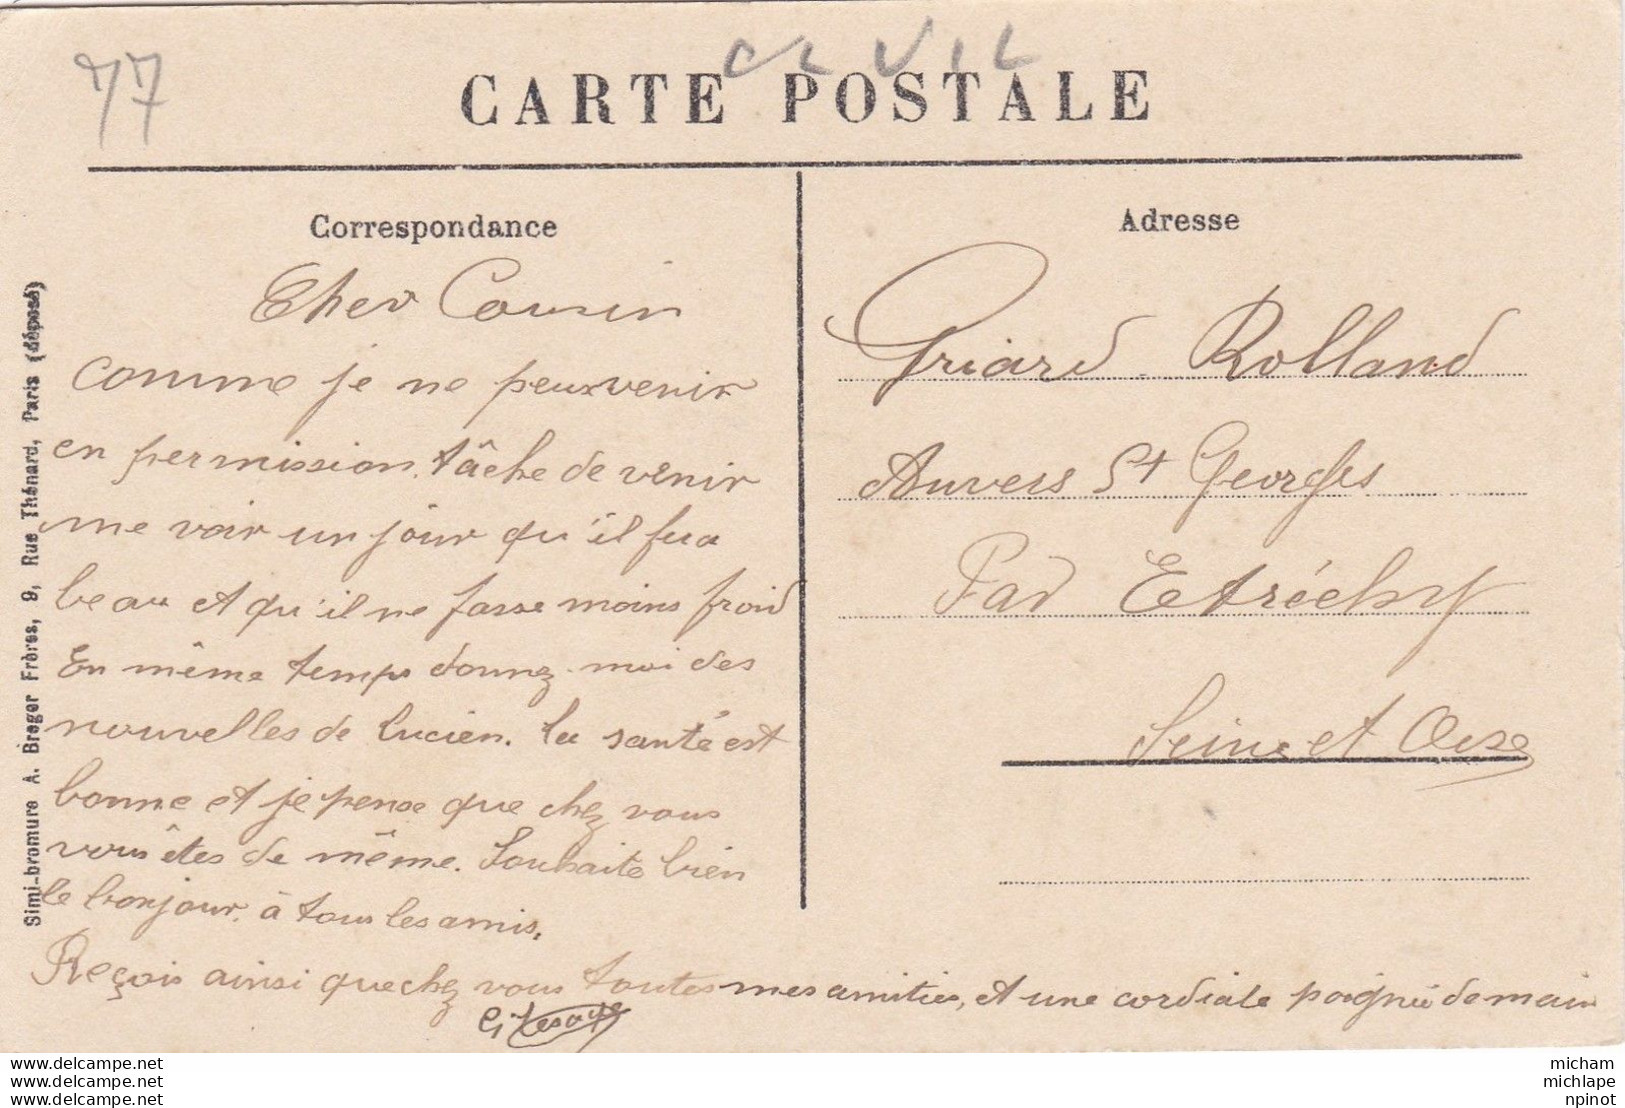 77
CLVIL
CARTE POSTALE
Correspondance
Cher Cousin
comme je ne peux venir
en permission, tâche de venir
me voir un jour qu'il fera
beau et qu'il ne fasse moins froid
En même temps donnez-moi des
nouvelles de Lucien. La santé est
bonne et je pense que chez vous
vous êtes de même. Souhaite bien
le bonjour à tous les amis.
Reçois ainsi que chez vous toutes mes amitiés, et une cordiale poignée de main
Adresse
Griard Rolland
Auvers St Georges
Par Etréchy
Seine et Oise
Simi-bromure A. Breger Frères, 9, Rue Thénard, Paris (déposé)
Delcampe.net
Delcampe.net
Delcampe.net
micham
michlape
npinot